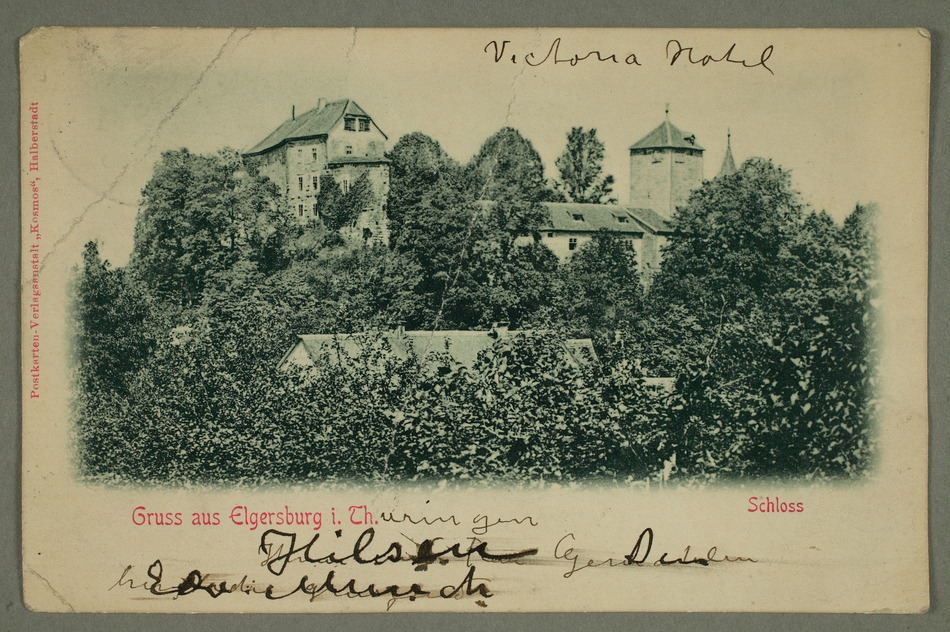 Victoria Hotel
Postkarten-Verlagsanstalt „Kosmos“, Halberstadt
Gruss aus Elgersburg i. Th.uringen
Schloss
Hilsen
Edv Munch